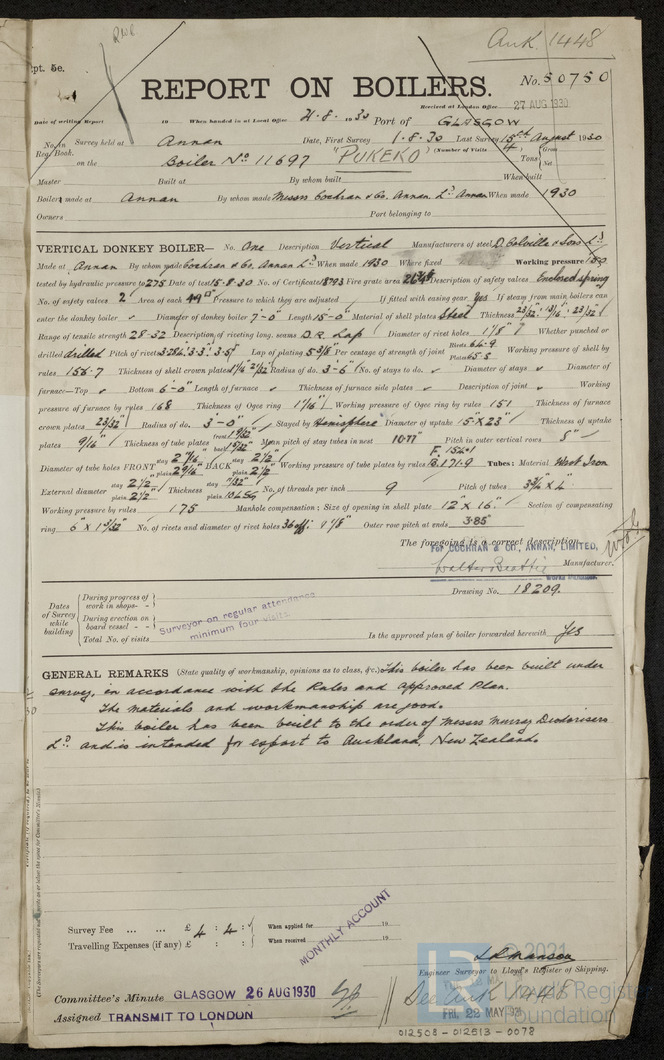 Auk. 1448
pt. 5c.
REPORT ON BOILERS.
No. 50750
Received at London Office 27 AUG 1930
Date of writing Report 19 When handed in at Local Office 21.8.1930 Port of GLASGOW
No. in Reg. Book. Survey held at Annan Date, First Survey 1.8.30 Last Survey 15th August 1930
on the Boiler No 11697 "PUKEKO" (Number of Visits 4) Tons Gross Net
Master Built at By whom built When built
Boilers made at Annan By whom made Messrs Cochran & Co. Annan Ld Annan When made 1930
Owners Port belonging to
VERTICAL DONKEY BOILER— No. One Description Vertical Manufacturers of steel D. Colville & Sons Ld
Made at Annan By whom made Cochran & Co. Annan Ld When made 1930 Where fixed Working pressure 150
tested by hydraulic pressure to 275 Date of test 15.8.30 No. of Certificate 18793 Fire grate area Description of safety valves Enclosed spring
No. of safety valves 2 Area of each Pressure to which they are adjusted If fitted with easing gear Yes If steam from main boilers can
enter the donkey boiler Diameter of donkey boiler 7'-0" Length 15'-0" Material of shell plates Steel Thickness 23/32" : 13/16" : 23/32"
Range of tensile strength 28-32 Description of riveting long. seams D.R. Lap Diameter of rivet holes 1 1/8" Whether punched or
drilled drilled Pitch of rivets Lap of plating 5 3/8" Per centage of strength of joint Rivets 64.9 Plate 65.5 Working pressure of shell by
rules 156.7 Thickness of shell crown plates Radius of do. 3'-6" No. of stays to do. Diameter of stays Diameter of
furnace—Top Bottom 6'-0" Length of furnace Thickness of furnace side plates Description of joint Working
pressure of furnace by rules 168 Thickness of Ogee ring 1 1/16" Working pressure of Ogee ring by rules 151 Thickness of furnace
crown plates 23/32" Radius of do. 3'-0" Stayed by Hemisphere Diameter of uptake 15" x 23" Thickness of uptake
plates 9/16" Thickness of tube plates front back 15/32" Mean pitch of stay tubes in nest 10.77" Pitch in outer vertical rows 8"
Diameter of tube holes FRONT stay 2 7/16" plain 2 9/16" BACK stay 2 1/2" plain 2 1/2" Working pressure of tube plates by rules F. 154.1 B. 171.9 Tubes: Material Wrot Iron
External diameter stay 2 1/2" plain 2 1/2" Thickness stay plain 10 LSG No. of threads per inch 9 Pitch of tubes 3 3/4" x 4"
Working pressure by rules 175 Manhole compensation: Size of opening in shell plate 12" x 16" Section of compensating
ring No. of rivets and diameter of rivet holes 36 off. 1 1/8" Outer row pitch at ends 3.85"
The foregoing is a correct description,
For COCHRAN & CO., ANNAN, LIMITED,
Walter Beattie Manufacturer.
WORKS MANAGER.
Drawing No. 18209.
Dates of Survey while building
During progress of work in shops - -
During erection on board vessel - - -
Total No. of visits
Surveyor on regular attendance
minimum four visits
Is the approved plan of boiler forwarded herewith Yes
GENERAL REMARKS (State quality of workmanship, opinions as to class, &c.) This boiler has been built under
survey, in accordance with the Rules and approved Plan.
The materials and workmanship are good.
This boiler has been built to the order of Messrs Murray Deodorisers
Ld and is intended for export to Auckland, New Zealand.
Survey Fee ... ... £ 4 : 4 : When applied for 19
Travelling Expenses (if any) £ : : When received 19
MONTHLY ACCOUNT
Engineer Surveyor to Lloyd's Register of Shipping.
Committee's Minute GLASGOW 26 AUG 1930
Assigned TRANSMIT TO LONDON
See Auk 1448
FRI, 22 MAY 1931
© 2021
Lloyd's Register
Foundation
012508 - 012513 - 0078